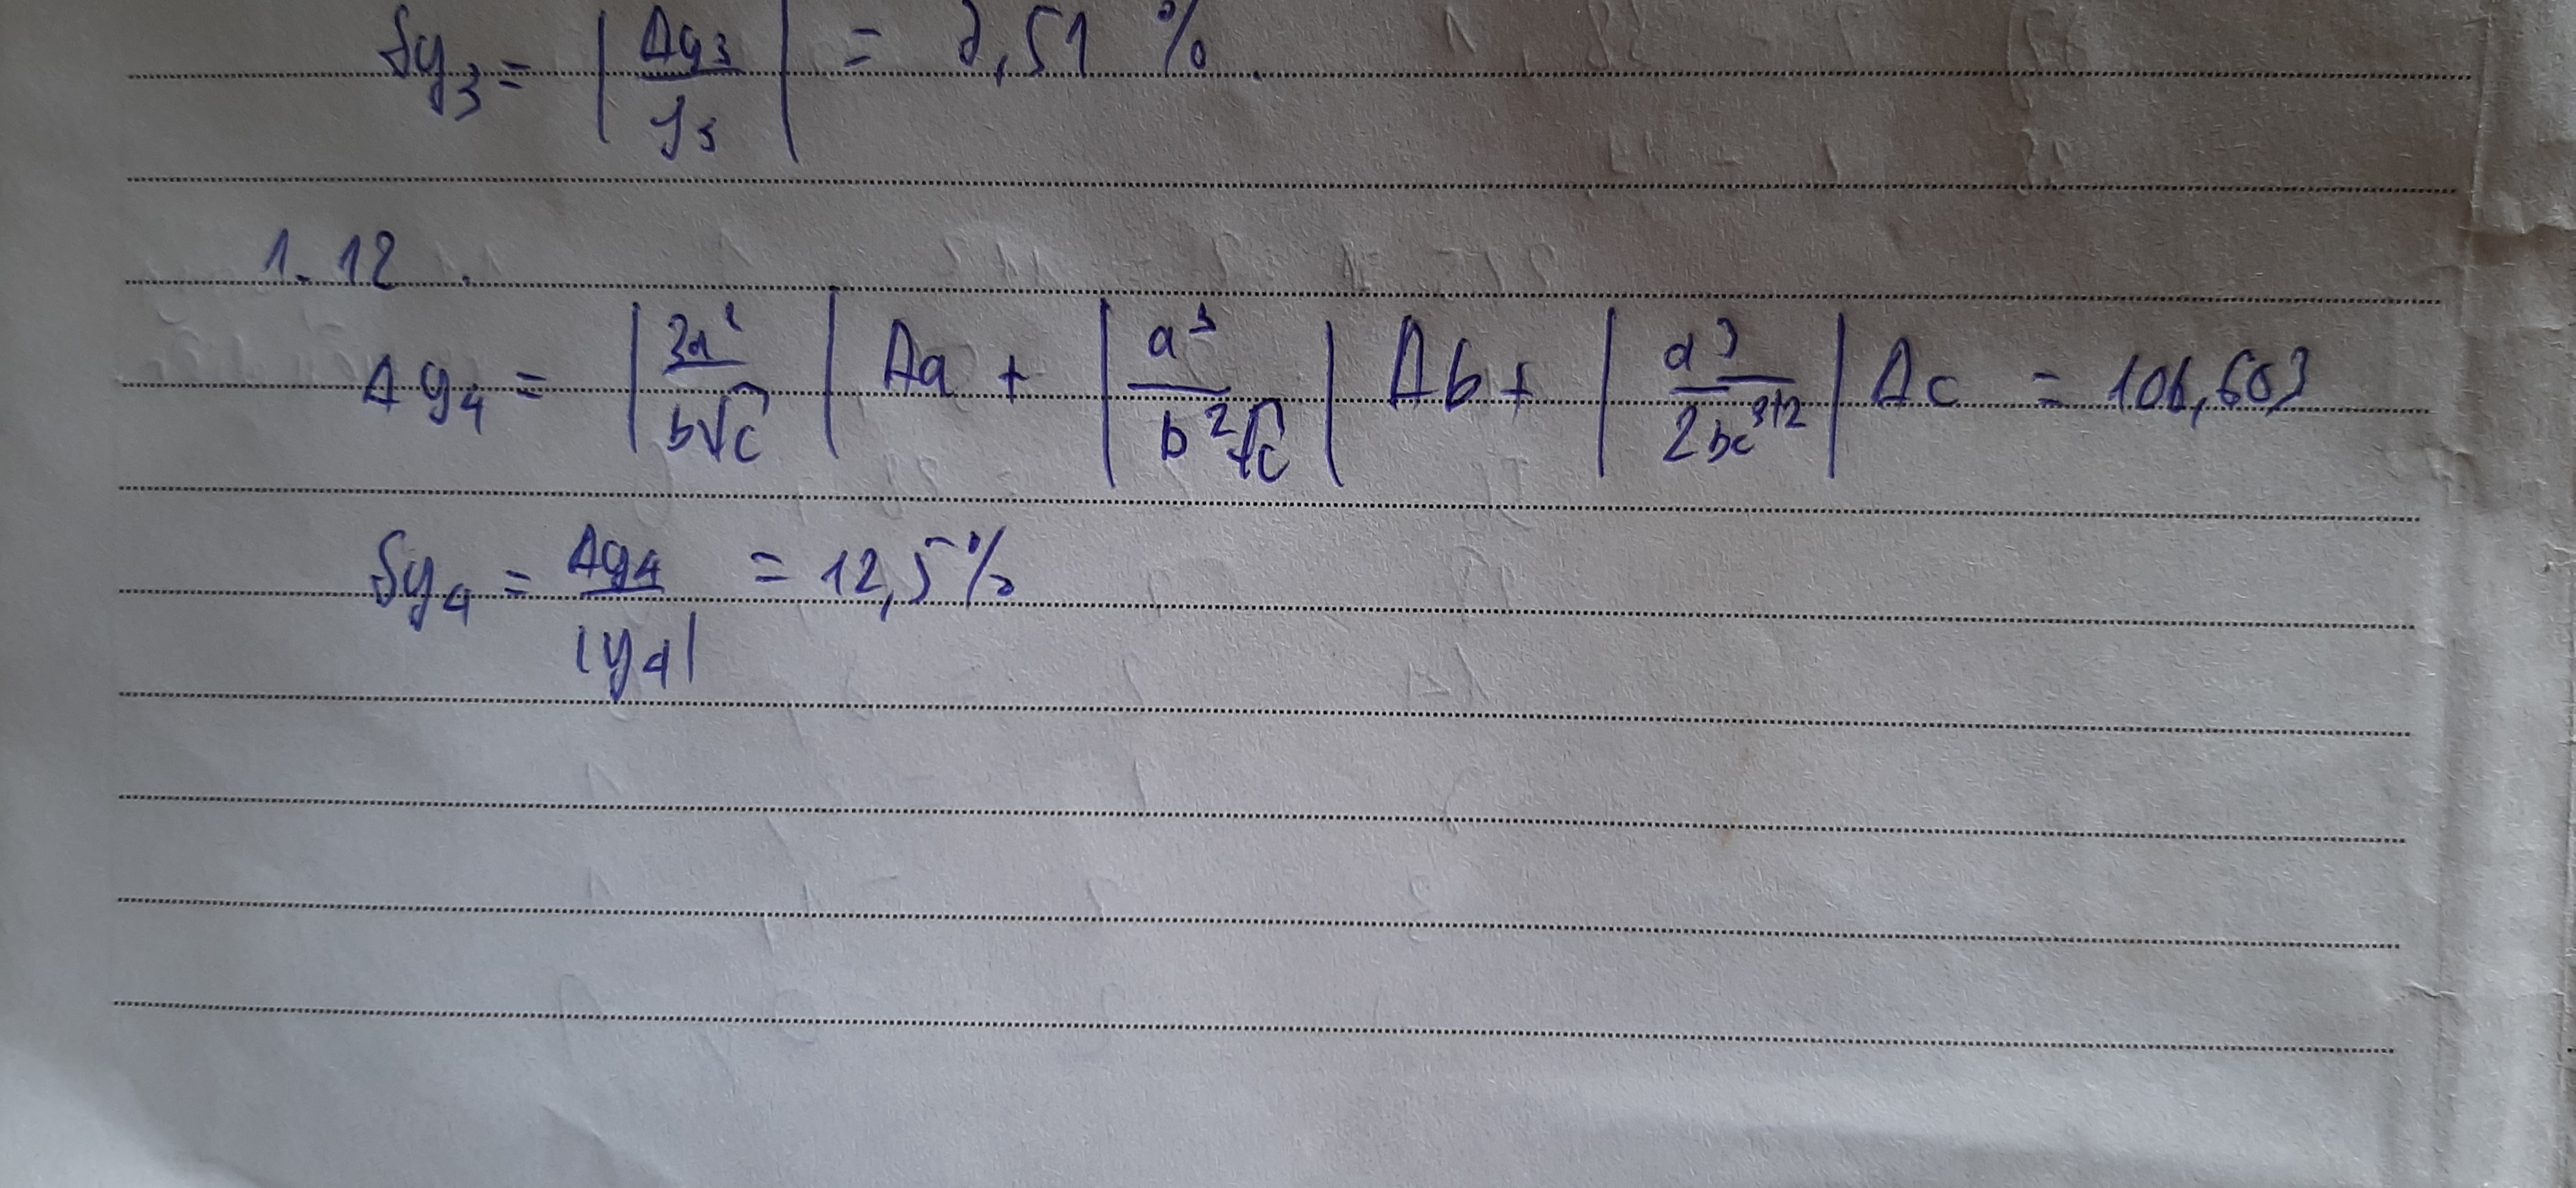 δy₃ = |Δy₃ / y₃| = 2,51 %.
1.12.
Δy₄ = |3a² / b√c| Δa + |a³ / b²√c| Δb + |a³ / 2bc^3/2| Δc = 106,603
δy₄ = Δy₄ / |y₄| = 12,5%